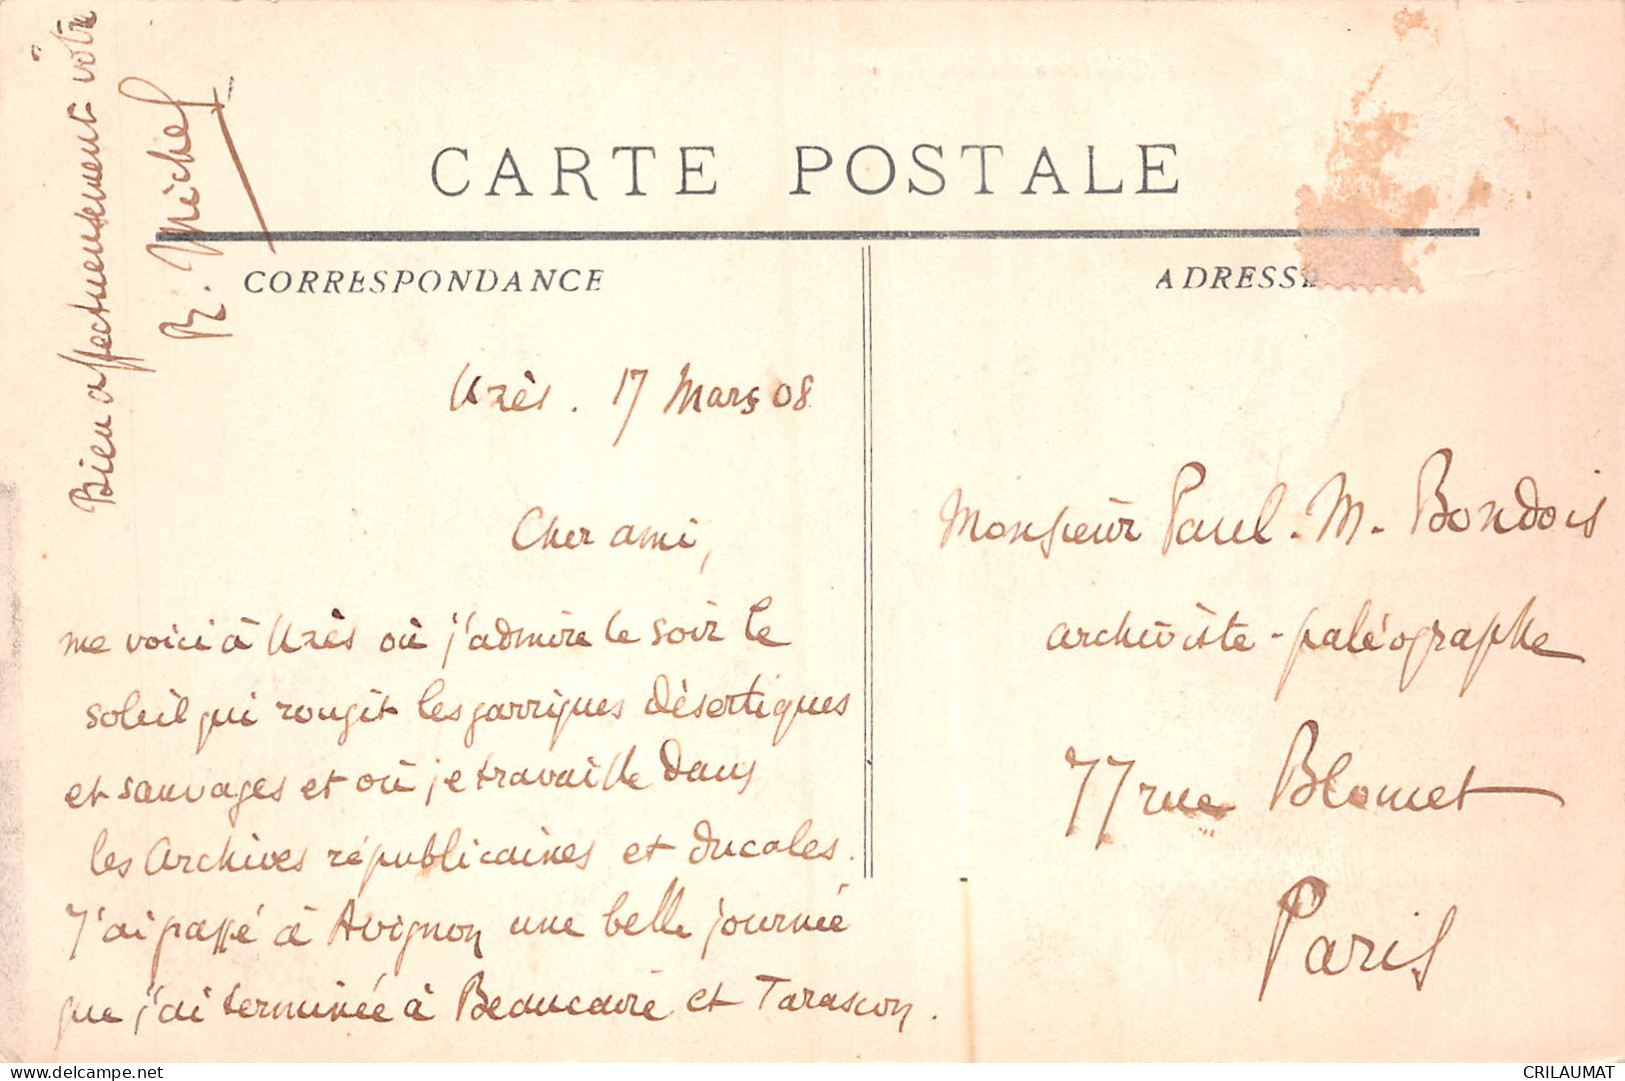 CARTE POSTALE
CORRESPONDANCE
ADRESSE
Uzès. 17 Mars 08
Cher ami,
me voici à Uzès où j'admire le soir le
soleil qui rougit les garrigues désertiques
et sauvages et où je travaille dans
les Archives républicaines et ducales.
J'ai passé à Avignon une belle journée
que j'ai terminée à Beaucaire et Tarascon.
Bien affectueusement vôtre
R. Michel
Monsieur Paul. M. Bondois
archiviste-paléographe
77 rue Blomet
Paris
delcampe.net
CRILAUMAT